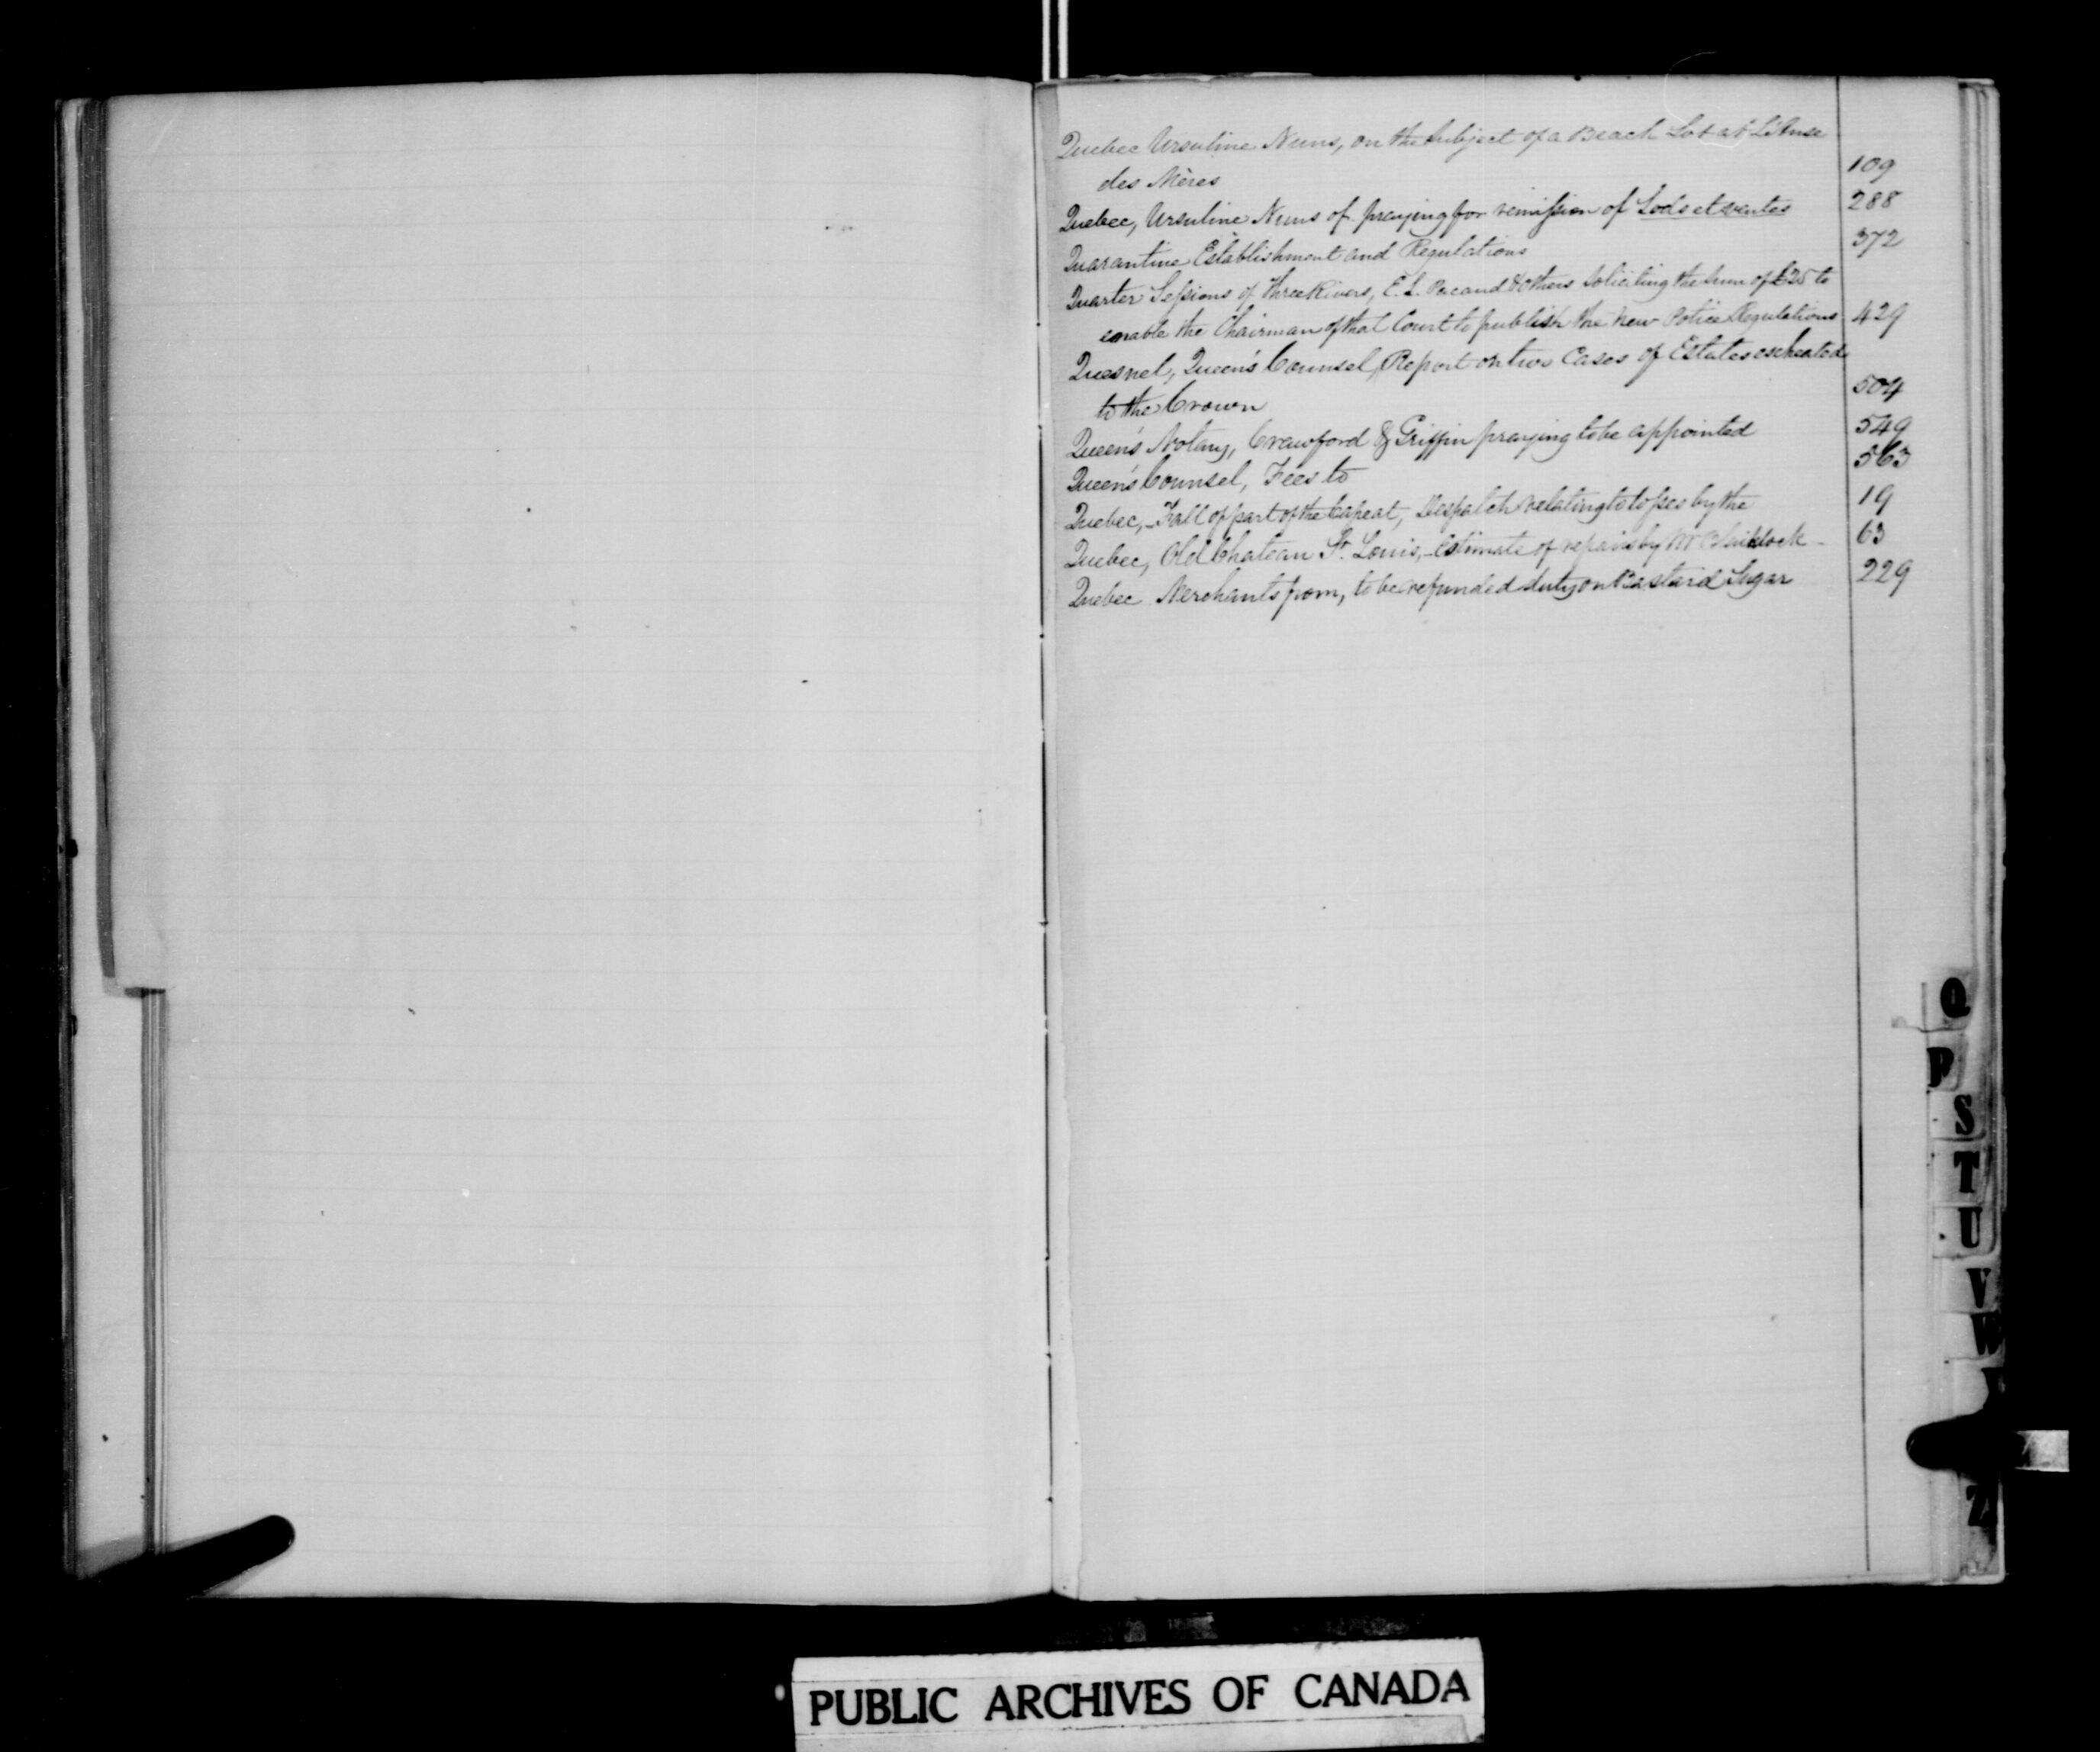 Quebec Ursuline Nuns, on the Subject of a Beach Lot at L'Anse
des Mères 109
Quebec, Ursuline Nuns of praying for remission of Lods et ventes 288
Quarantine Establishment and Regulations 372
Quarter Sessions of Three Rivers, E. L. Pacaud & others Soliciting the Sum of £25 to
enable the Chairman of that Court to publish the New Police Regulations 429
Quesnel, Queen's Counsel, Report on two Cases of Estates escheated
to the Crown 504
Queen's Notary, Crawford & Griffin praying to be appointed 549
Queen's Counsel, Fees to 563
Quebec, - Fall of part of the Cape at, Despatch relating to losses by the 19
Quebec, Old Chateau St. Louis, - Estimate of repairs by Mr 63
Quebec Merchants from, to be refunded duty on Bastard Sugar 229
Q
P
S
T
U
V
W
Z
PUBLIC ARCHIVES OF CANADA